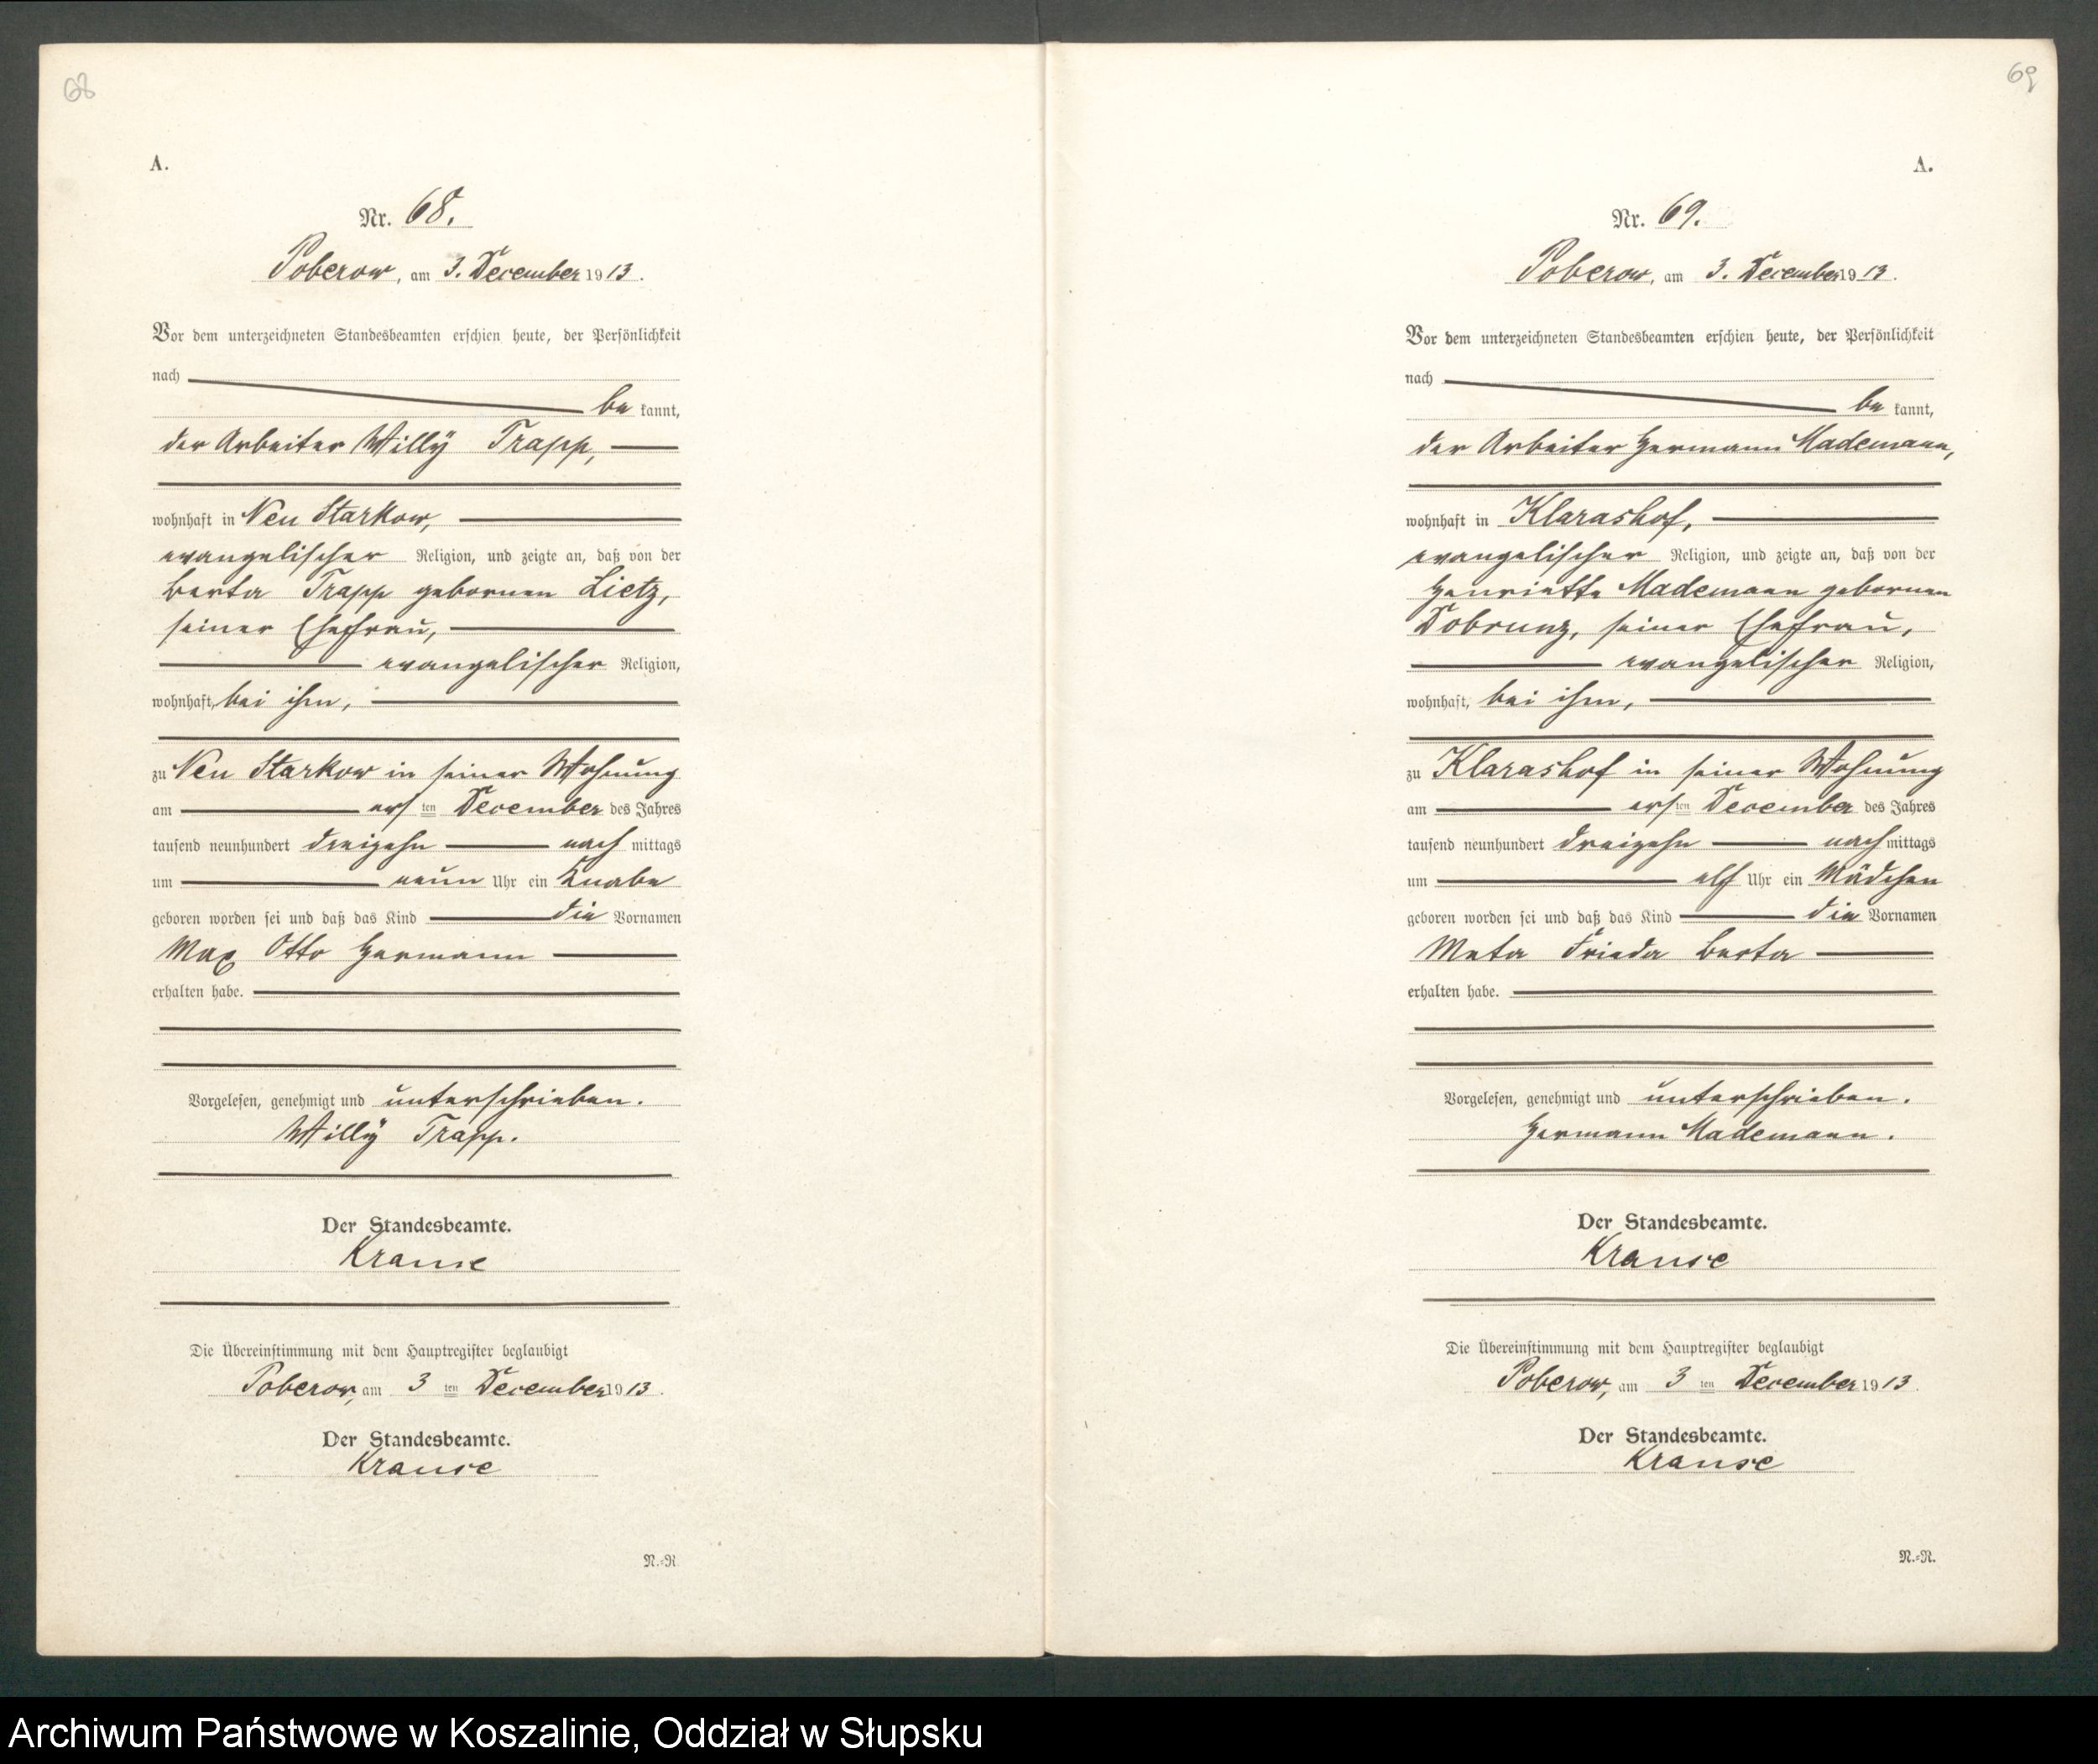 68
A.
Nr. 68.
Poberow, am 3. December 1913.
Vor dem unterzeichneten Standesbeamten erschien heute, der Persönlichkeit
nach
be kannt,
der Arbeiter Willy Trapp,
wohnhaft in Neu Starkow,
evangelischer Religion, und zeigte an, daß von der
Berta Trapp gebornen Lietz,
seiner Ehefrau,
evangelischer Religion,
wohnhaft, bei ihm,
zu Neu Starkow in seiner Wohnung
am ersten December des Jahres
tausend neunhundert dreizehn nach mittags
um neun Uhr ein Knabe
geboren worden sei und daß das Kind die Vornamen
Max Otto Hermann
erhalten habe.
Vorgelesen, genehmigt und unterschrieben.
Willy Trapp.
Der Standesbeamte.
Krause
Die Übereinstimmung mit dem Hauptregister beglaubigt
Poberow, am 3 ten December 1913.
Der Standesbeamte.
Krause
N.=R
69
A.
Nr. 69.
Poberow, am 3. December 1913.
Vor dem unterzeichneten Standesbeamten erschien heute, der Persönlichkeit
nach
be kannt,
der Arbeiter Hermann Mademann,
wohnhaft in Klarashof,
evangelischer Religion, und zeigte an, daß von der
Henriette Mademann gebornen
Dobrunz, seiner Ehefrau,
evangelischer Religion,
wohnhaft, bei ihm,
zu Klarashof in seiner Wohnung
am ersten December des Jahres
tausend neunhundert dreizehn nach mittags
um elf Uhr ein Mädchen
geboren worden sei und daß das Kind die Vornamen
Meta Frieda Berta
erhalten habe.
Vorgelesen, genehmigt und unterschrieben.
Hermann Mademann.
Der Standesbeamte.
Krause
Die Übereinstimmung mit dem Hauptregister beglaubigt
Poberow, am 3 ten December 1913.
Der Standesbeamte.
Krause
N.=R.
Archiwum Państwowe w Koszalinie, Oddział w Słupsku